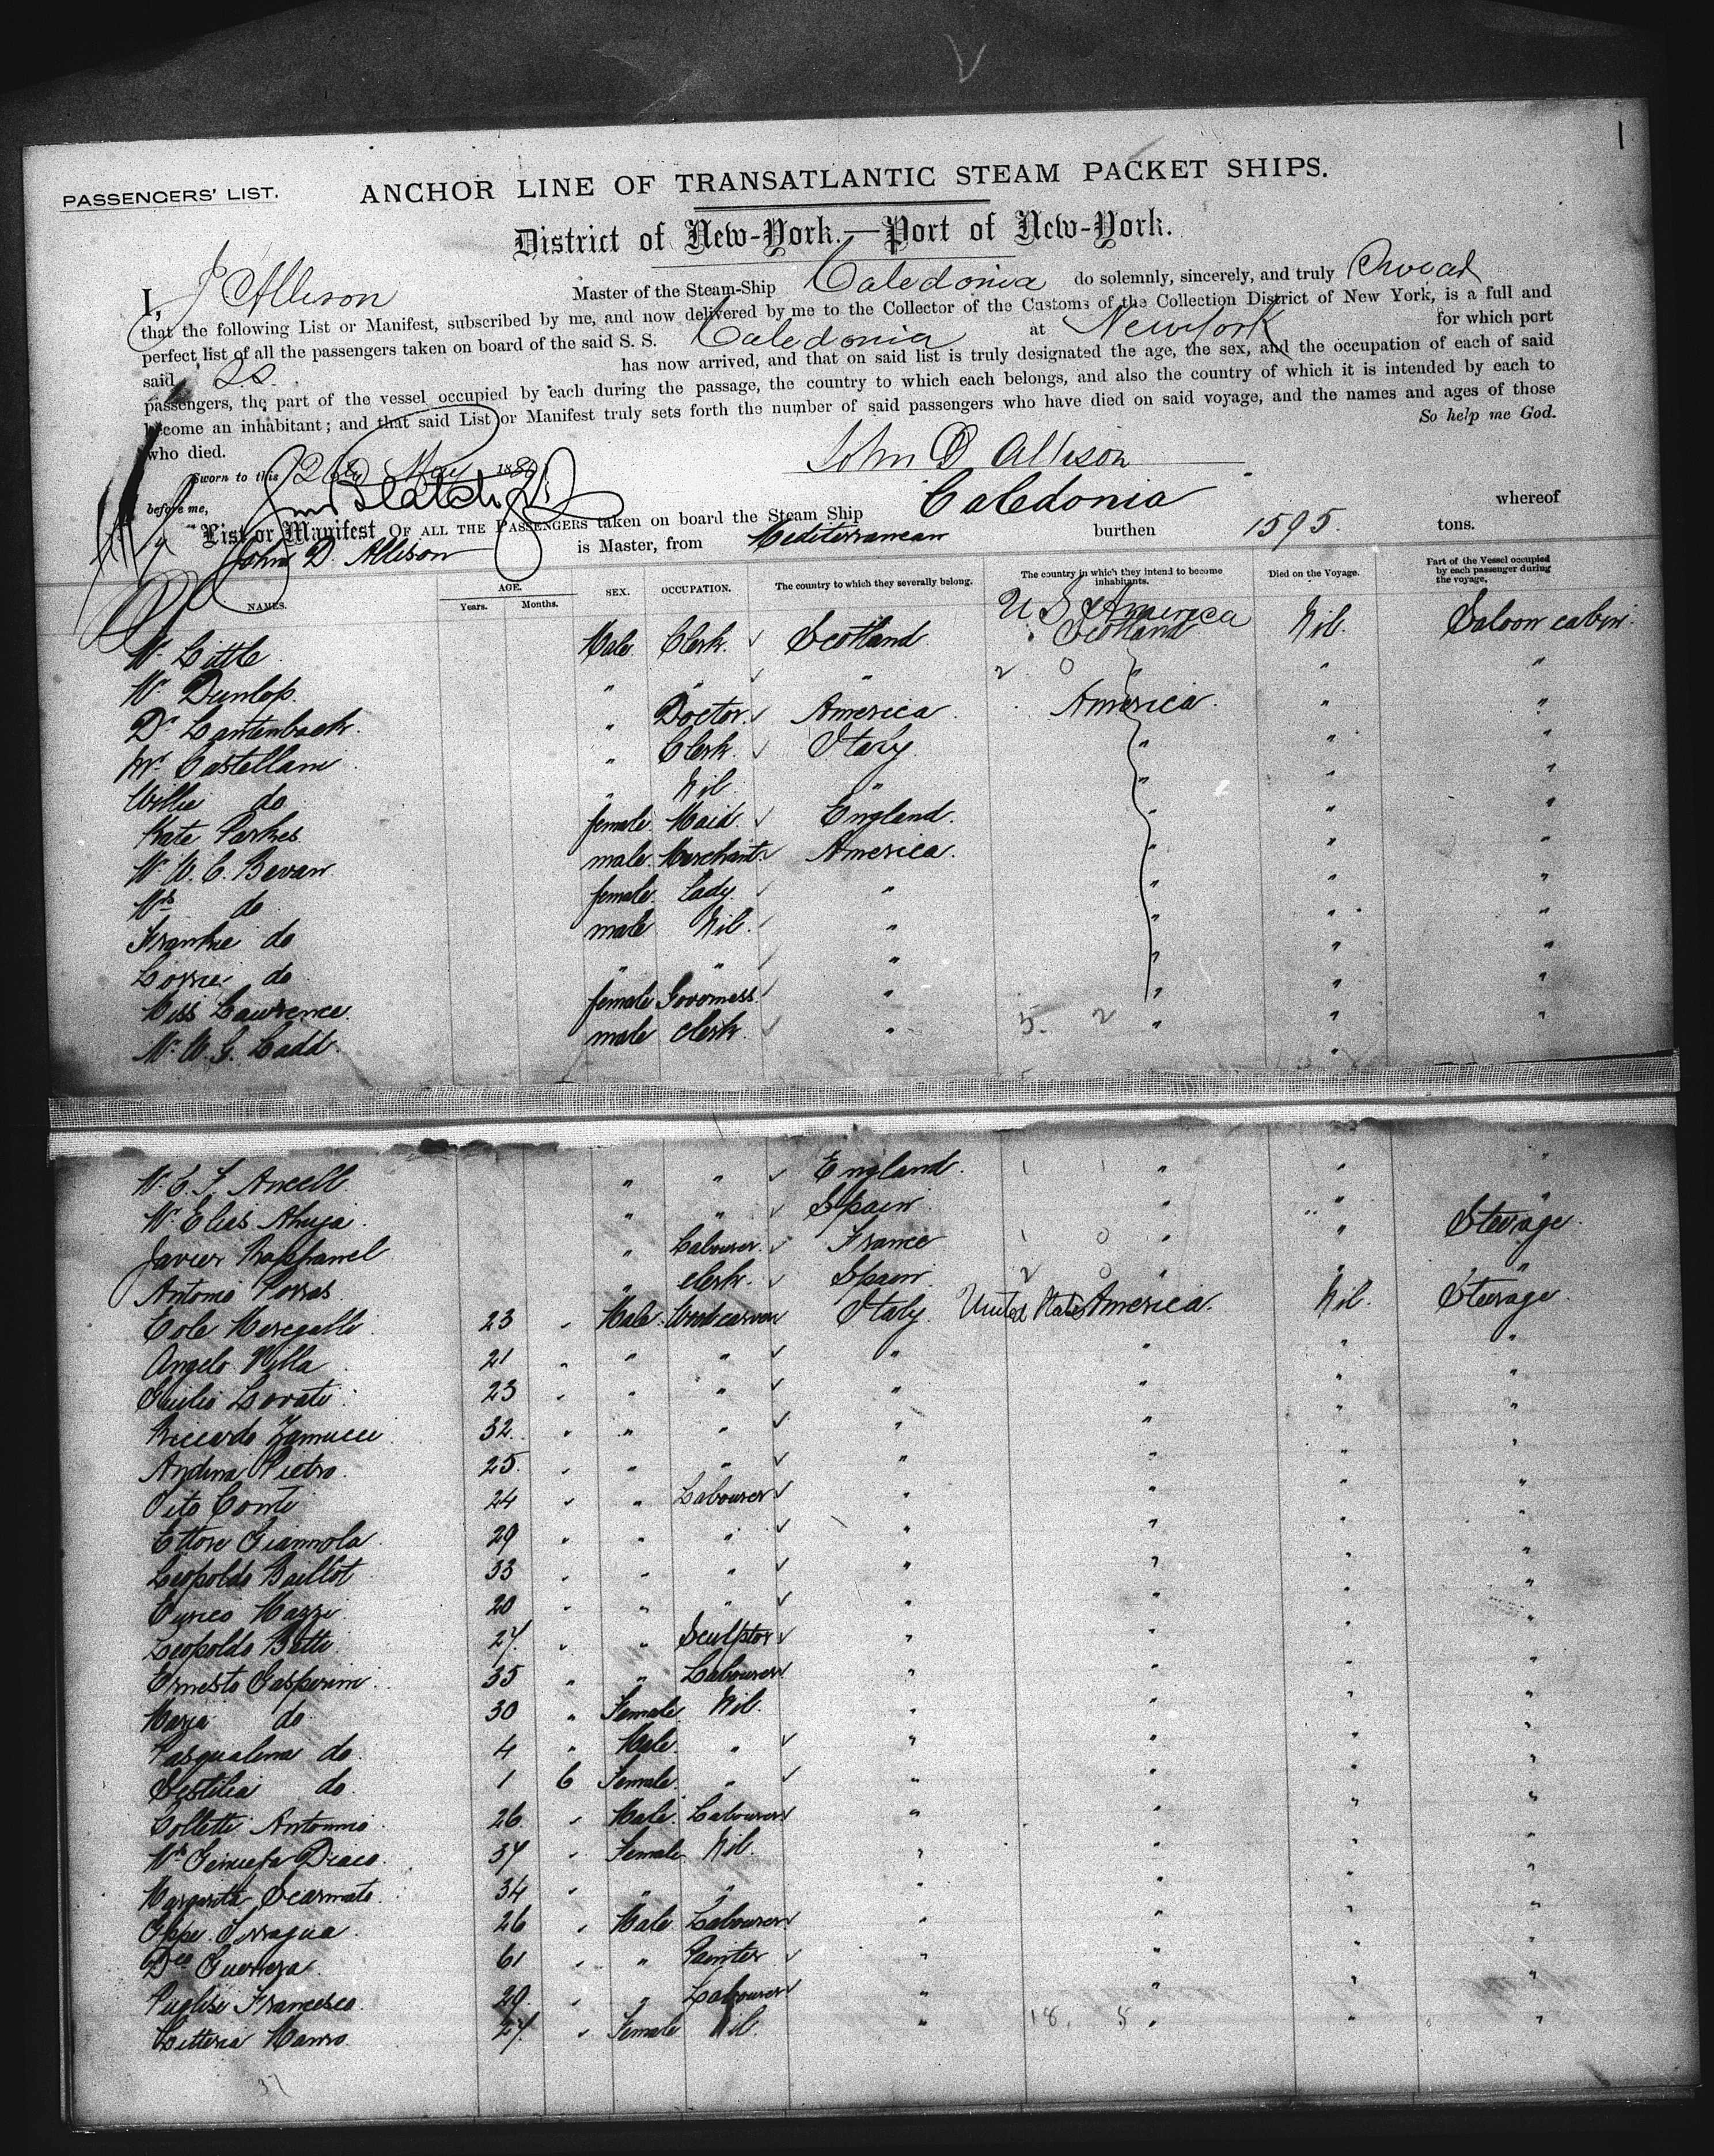 1
PASSENGERS' LIST.
ANCHOR LINE OF TRANSATLANTIC STEAM PACKET SHIPS.
District of New-York.—Port of New-York.
I, J Allison Master of the Steam-Ship Caledonia do solemnly, sincerely, and truly Swear
that the following List or Manifest, subscribed by me, and now delivered by me to the Collector of the Customs of the Collection District of New York, is a full and
perfect list of all the passengers taken on board of the said S. S. Caledonia at New York for which port
said SS. has now arrived, and that on said list is truly designated the age, the sex, and the occupation of each of said
passengers, the part of the vessel occupied by each during the passage, the country to which each belongs, and also the country of which it is intended by each to
become an inhabitant; and that said List or Manifest truly sets forth the number of said passengers who have died on said voyage, and the names and ages of those
who died. So help me God.
Sworn to this 26 May 188
John D Allison
before me,
List or Manifest OF ALL THE PASSENGERS taken on board the Steam Ship Caledonia whereof
John D. Allison is Master, from Mediterranean burthen 1595. tons.
NAMES. AGE. Years. Months. SEX. OCCUPATION. The country to which they severally belong. The country in which they intend to become inhabitants. Died on the Voyage. Part of the Vessel occupied by each passenger during the voyage.
U S America
Mr Little Male. Clerk. ✓ Scotland Scotland Nil. Saloon cabin.
Mr Dunlop. " " ✓ " 2 0 " " "
Dr Lautenbach. " Doctor. ✓ America. America. " "
Mr Castellani " Clerk. ✓ Italy " " "
Willie do " Nil " " " "
Kate Parkes female. Maid. ✓ England. " " "
Mr W. C. Bevan male. Merchant ✓ America. " " "
Mrs do female. Lady. ✓ " " " "
Frankie do male Nil. ✓ " " " "
do " " ✓ " " " "
Miss Lawrence. female Governess ✓ " " " "
Mr W. G. Ladd. male Clerk. ✓ " 5. 2 " " "
Mr E. F. Ancell. " " ✓ England. 1 1 " " "
Mr Elias Ahuja. " " ✓ Spain. " " "
Javier " Labourer. ✓ France 1 0 " " Steerage.
Antonio Porras. " Clerk. ✓ Spain. 2 0 " " "
Cole Meregalli. 23 " Male. Woodcarver Italy. United States America. Nil. Steerage.
Angelo Villa 21 " " " ✓ " " " "
Giulio Lovati. 23 " " " ✓ " " " "
Riccardo Zanucci 32. " " " ✓ " " " "
Andina Pietro. 25. " " " ✓ " " " "
Vito Conti 24 " " Labourer ✓ " " " "
Ettore Giannola 29 " " " ✓ " " " "
Leopoldo Baillot 33 " " " ✓ " " " "
Enrico Mazzi 20 " " " ✓ " " " "
Leopoldo Batti. 27. " " Sculptor ✓ " " " "
Ernesto Gasperini. 35 " " Labourer ✓ " " " "
Maria do. 30 " Female. Nil. " " " "
Pasqualina do. 4 " Male. " ✓ " " " "
Sestilia do. 1 6 Female. " ✓ " " " "
Colletti Antonino 26. " Male. Labourer ✓ " " " "
Mrs Draco. 37 " Female. Nil. " " " "
Margarita Scarmato. 34 " " " " " " "
Gppe. 26 " Male. Labourer ✓ " " " "
Dco Guerrera. 61 " " Painter ✓ " " " "
Puglisi Francesco. 29. " " Labourer ✓ " " " "
Letteria Mauro. 27. " Female Nil. " 18. 8 " " "
37